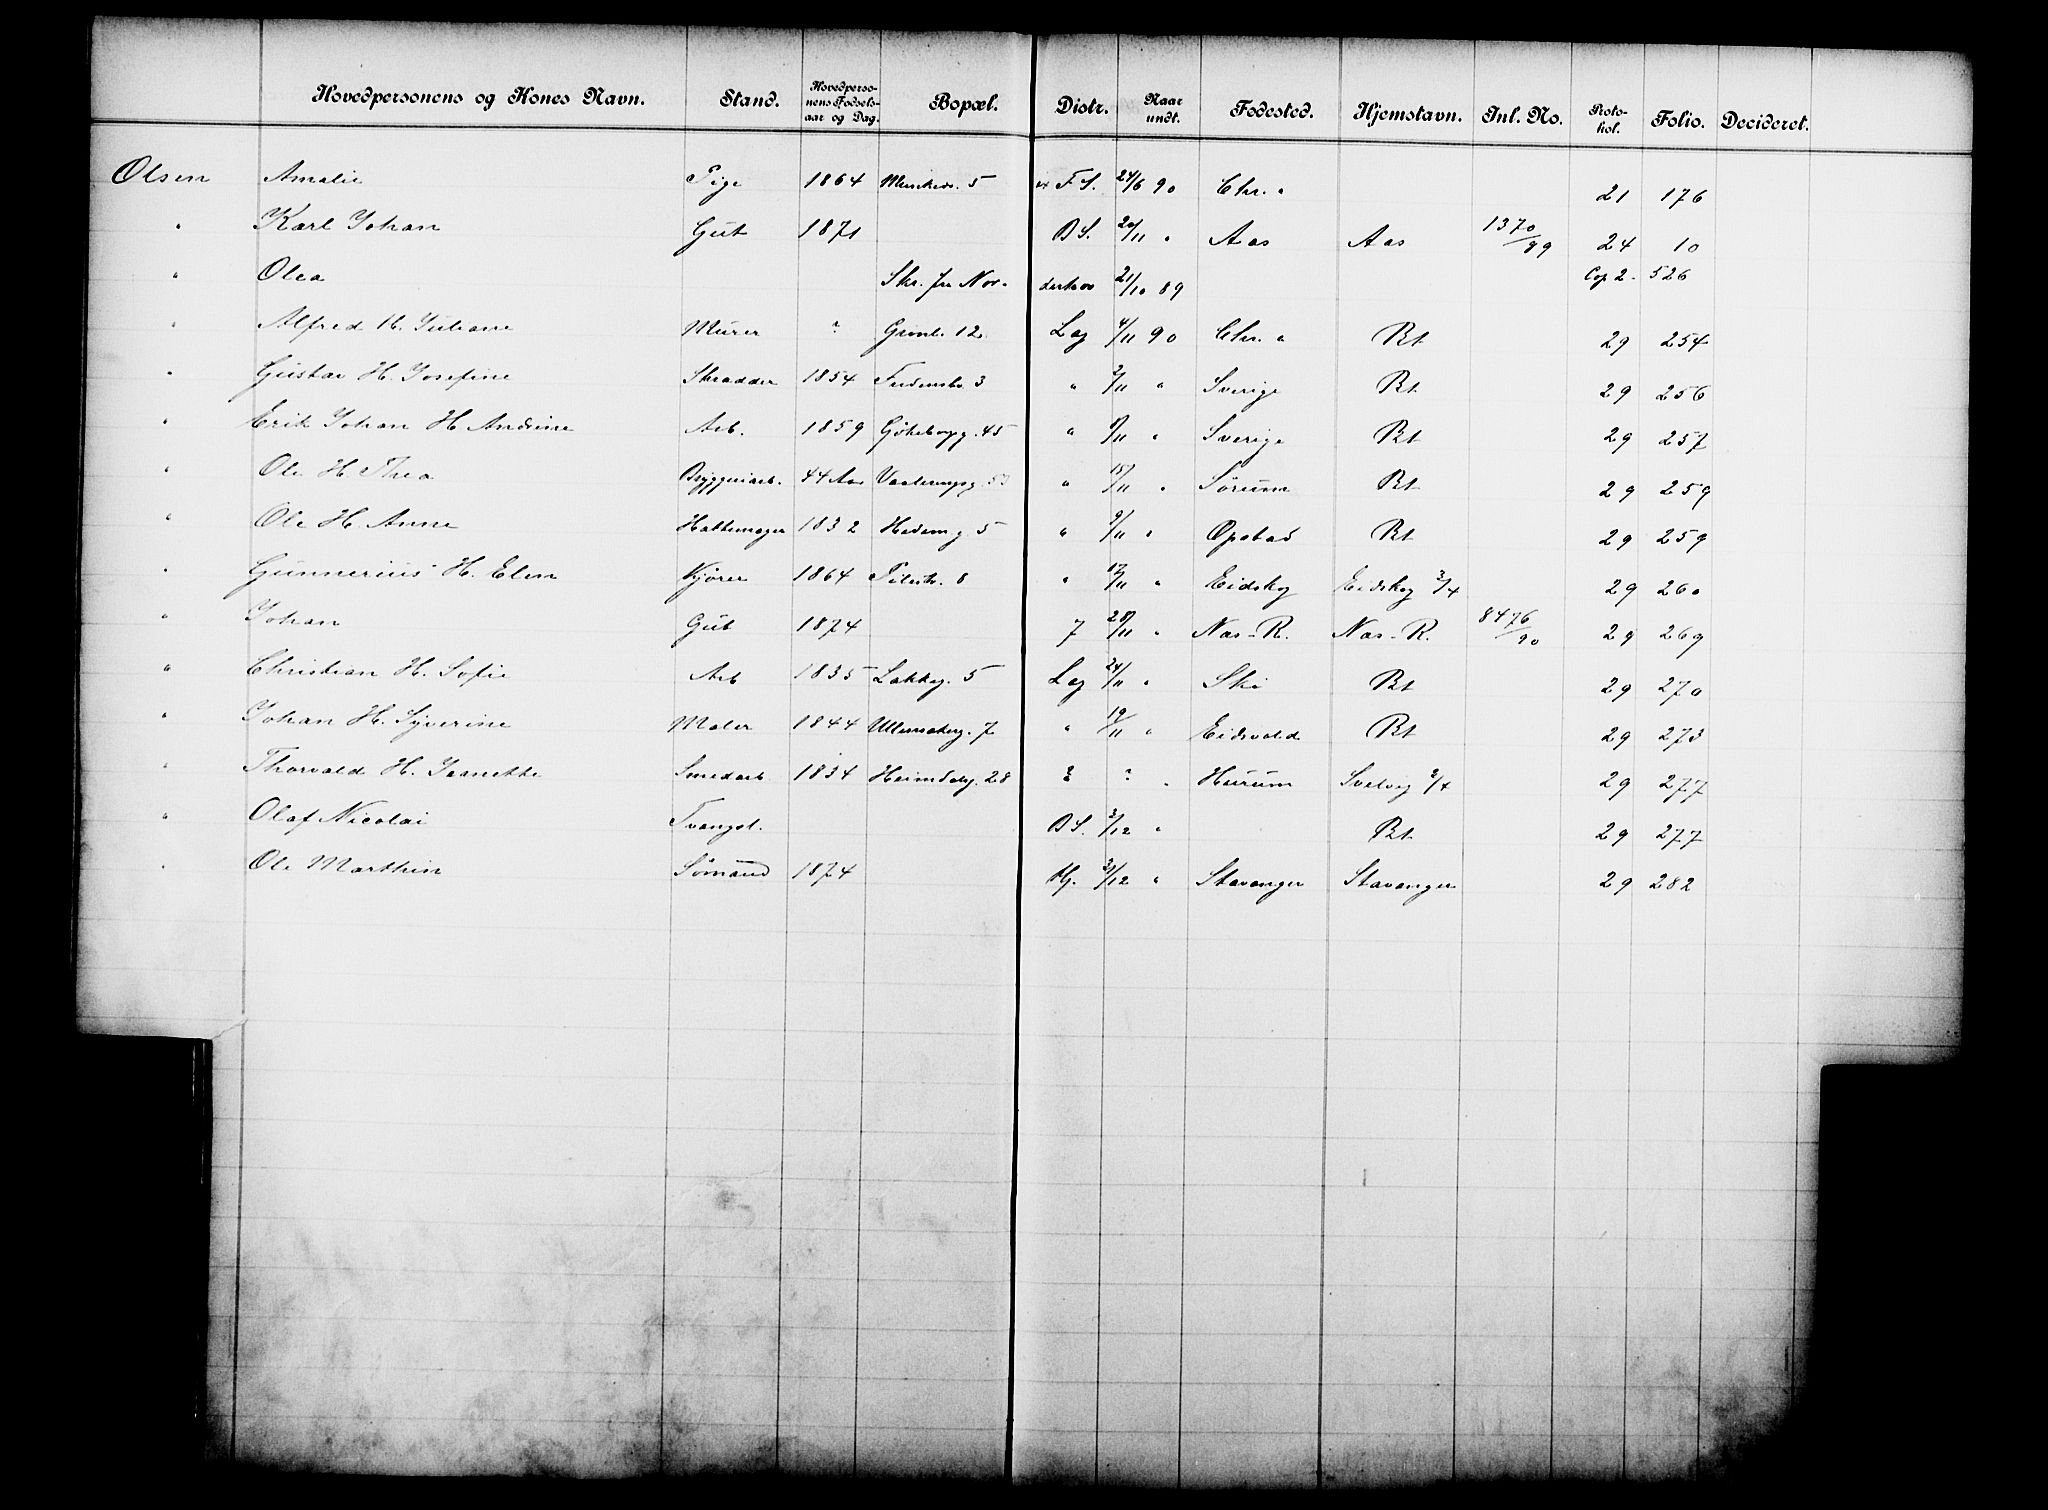 Hovedpersonens og Kones Navn. Stand. Hovedpersonens Fødselsaar og Dag. Bopæl. Distr. Naar undt. Fødested. Hjemstavn. Inl. No. Protokol. Folio. Decideret.
Olsen Amalie Pige 1864 5 F S. 24/6 90 Chr. a 21 176
" Karl Johan Gut 1871 B S. 20/11 " Aas Aas 1370/89 24 10
" Olea Skr. fra Nor- derhov 21/10 89 Cop 2. 526
" Alfred H. Juliane Murer " Grønl. 12 Lag 4/11 90 Chr. a Bt 29 254
" Gustav H. Josefine Skrædder 1854 3 " 2/11 " Sverige Bt 29 256
" Erik Johan H Andrine Arb. 1859 Gøteborgg. 45 " /11 " Sverige Bt 29 257
" Ole H. Thea Bryggeriarb. 44 Aar Vaalerengg. " 15/11 " Sørum Bt 29 259
" Ole H. Anne Hattemager 1832 Hedem.g 5 " 9/11 " Opstad Bt 29 259
" Gunnerius H. Elen Kjører 1864 Pilestr. 8 " 17/11 " Eidskog Eidskog 3/4 29 260
" Johan Gut 1874 7 28/11 " Næs-R. Næs-R. 8476/90 29 269
" Christian H. Sofie Arb 1835 Lakkeg. 5 Lag 24/11 " Ski Bt 29 270
" Johan H. Syverine Maler 1844 7 " 19/11 " Eidsvold Bt 29 273
" Thorvald H. Jeanette Smedarb 1834 Heimdalsg. 28 2 " " Hurum Svelvig 2/4 29 277
" Olaf Nicolai Tvangsl. B S. 3/12 " Bt 29 277
" Ole Marthin Sømand 1874 Hj. 3/12 " Stavanger Stavanger 29 282